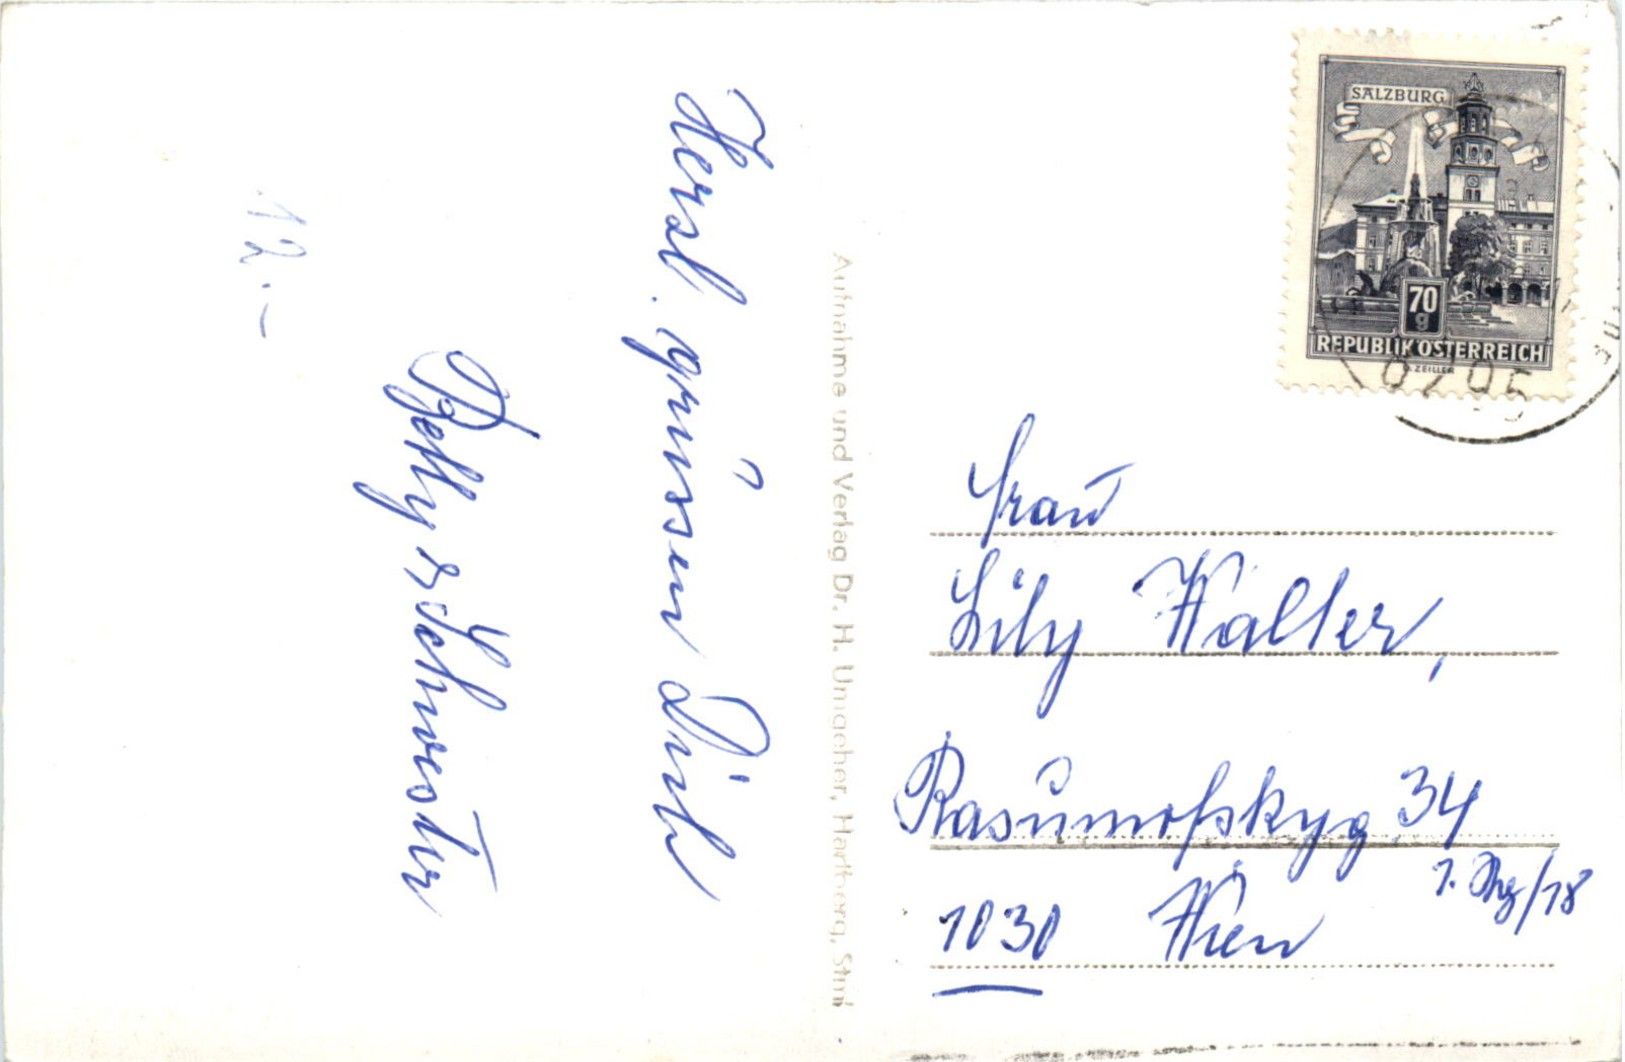 Herzl. grüssen Dich
Betty & Schwester
12.-
Aufnahme und Verlag Dr. H. Umgeher, Hartberg, Stmk
SALZBURG
70
g
REPUBLIK ÖSTERREICH
ZEILLER
8205
Frau
Lily Walter,
Rasumofskyg 34
1. Stg/18
1030 Wien